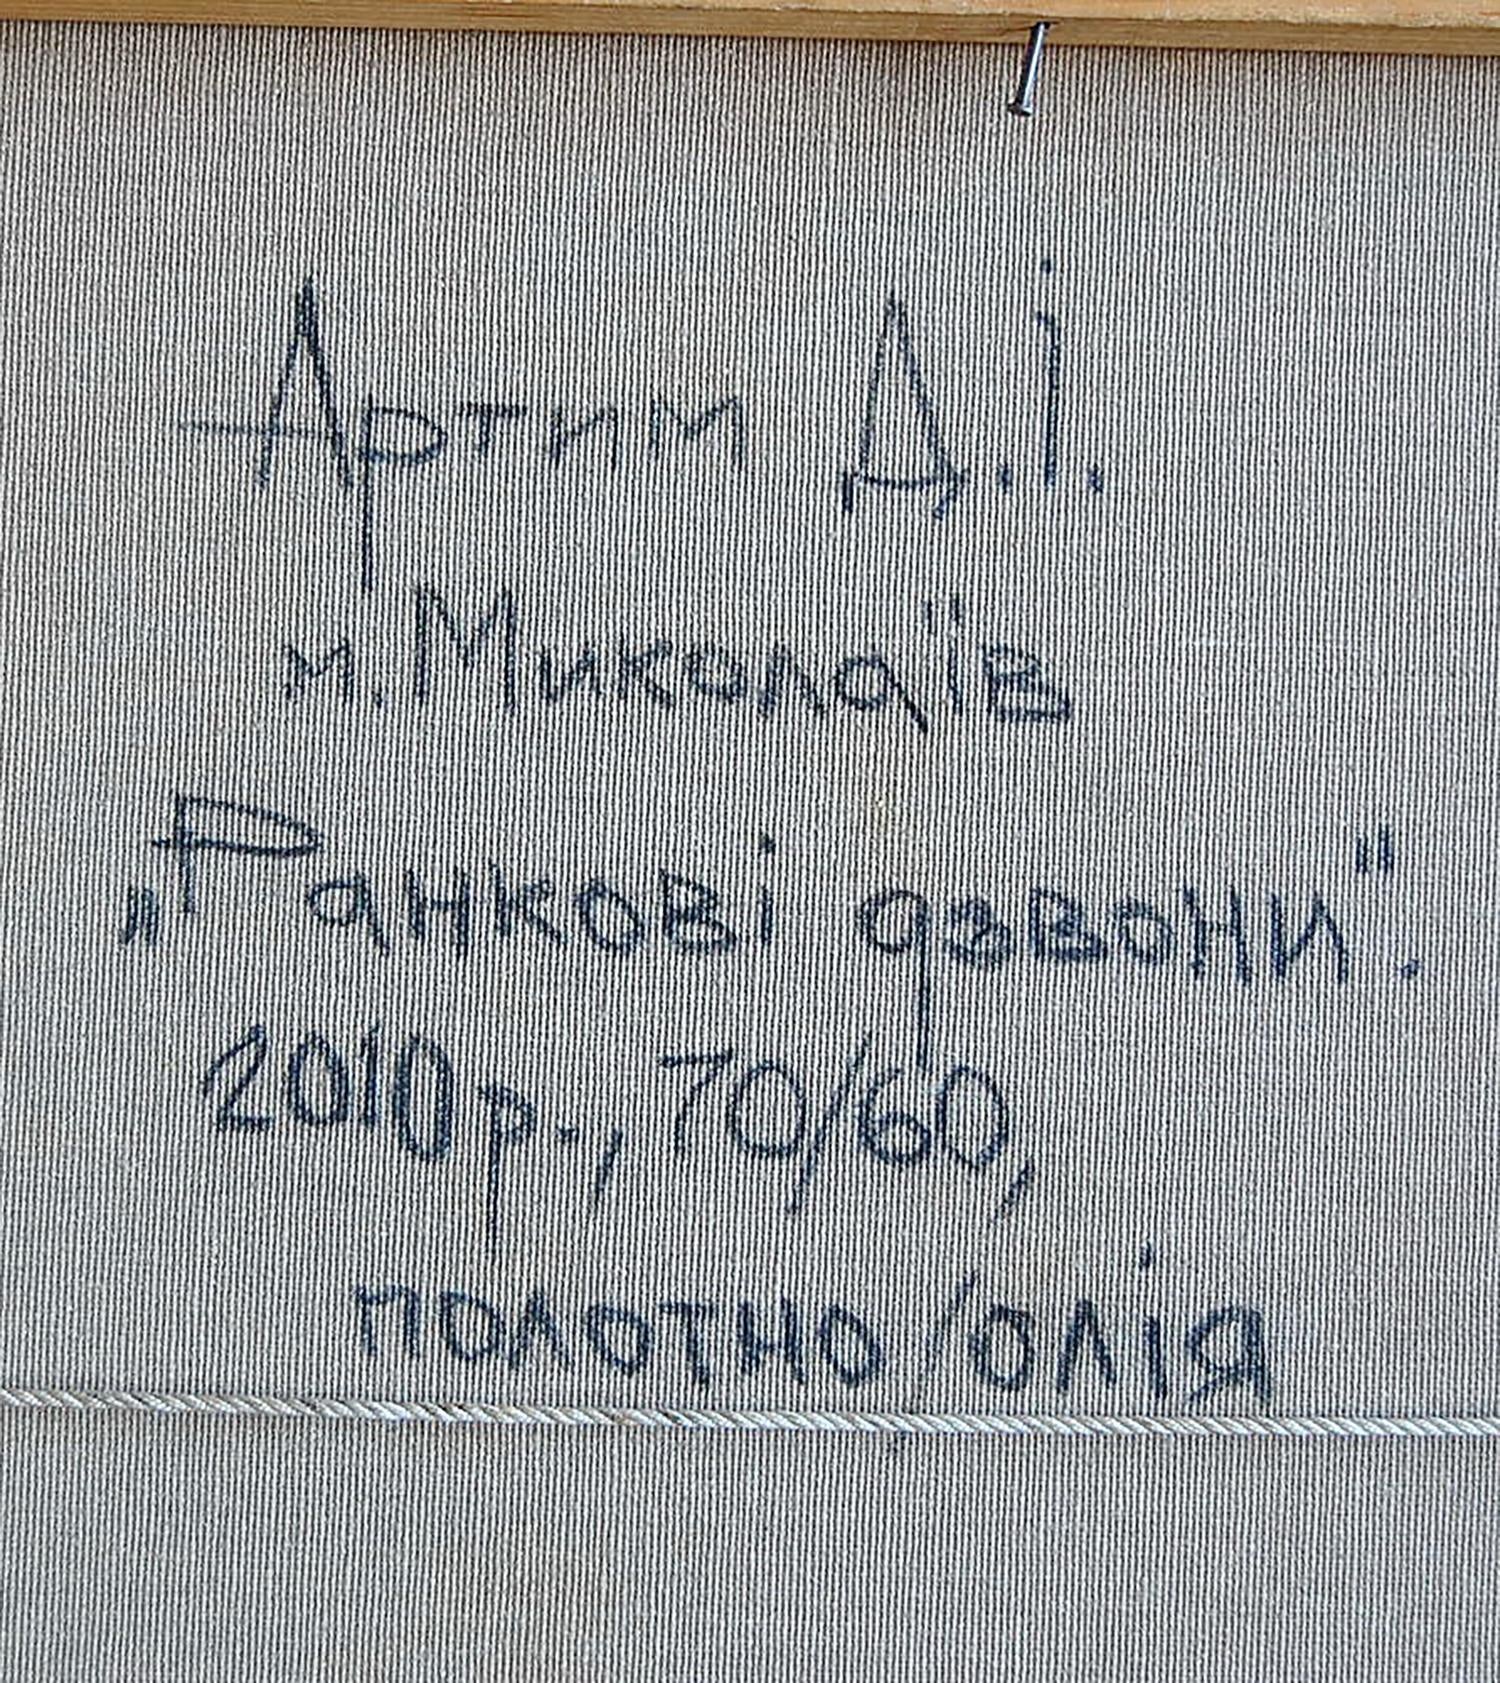 Артим Д.І.
м. Миколаїв
„Ранкові дзвони".
2010р., 70/60,
полотно/олія